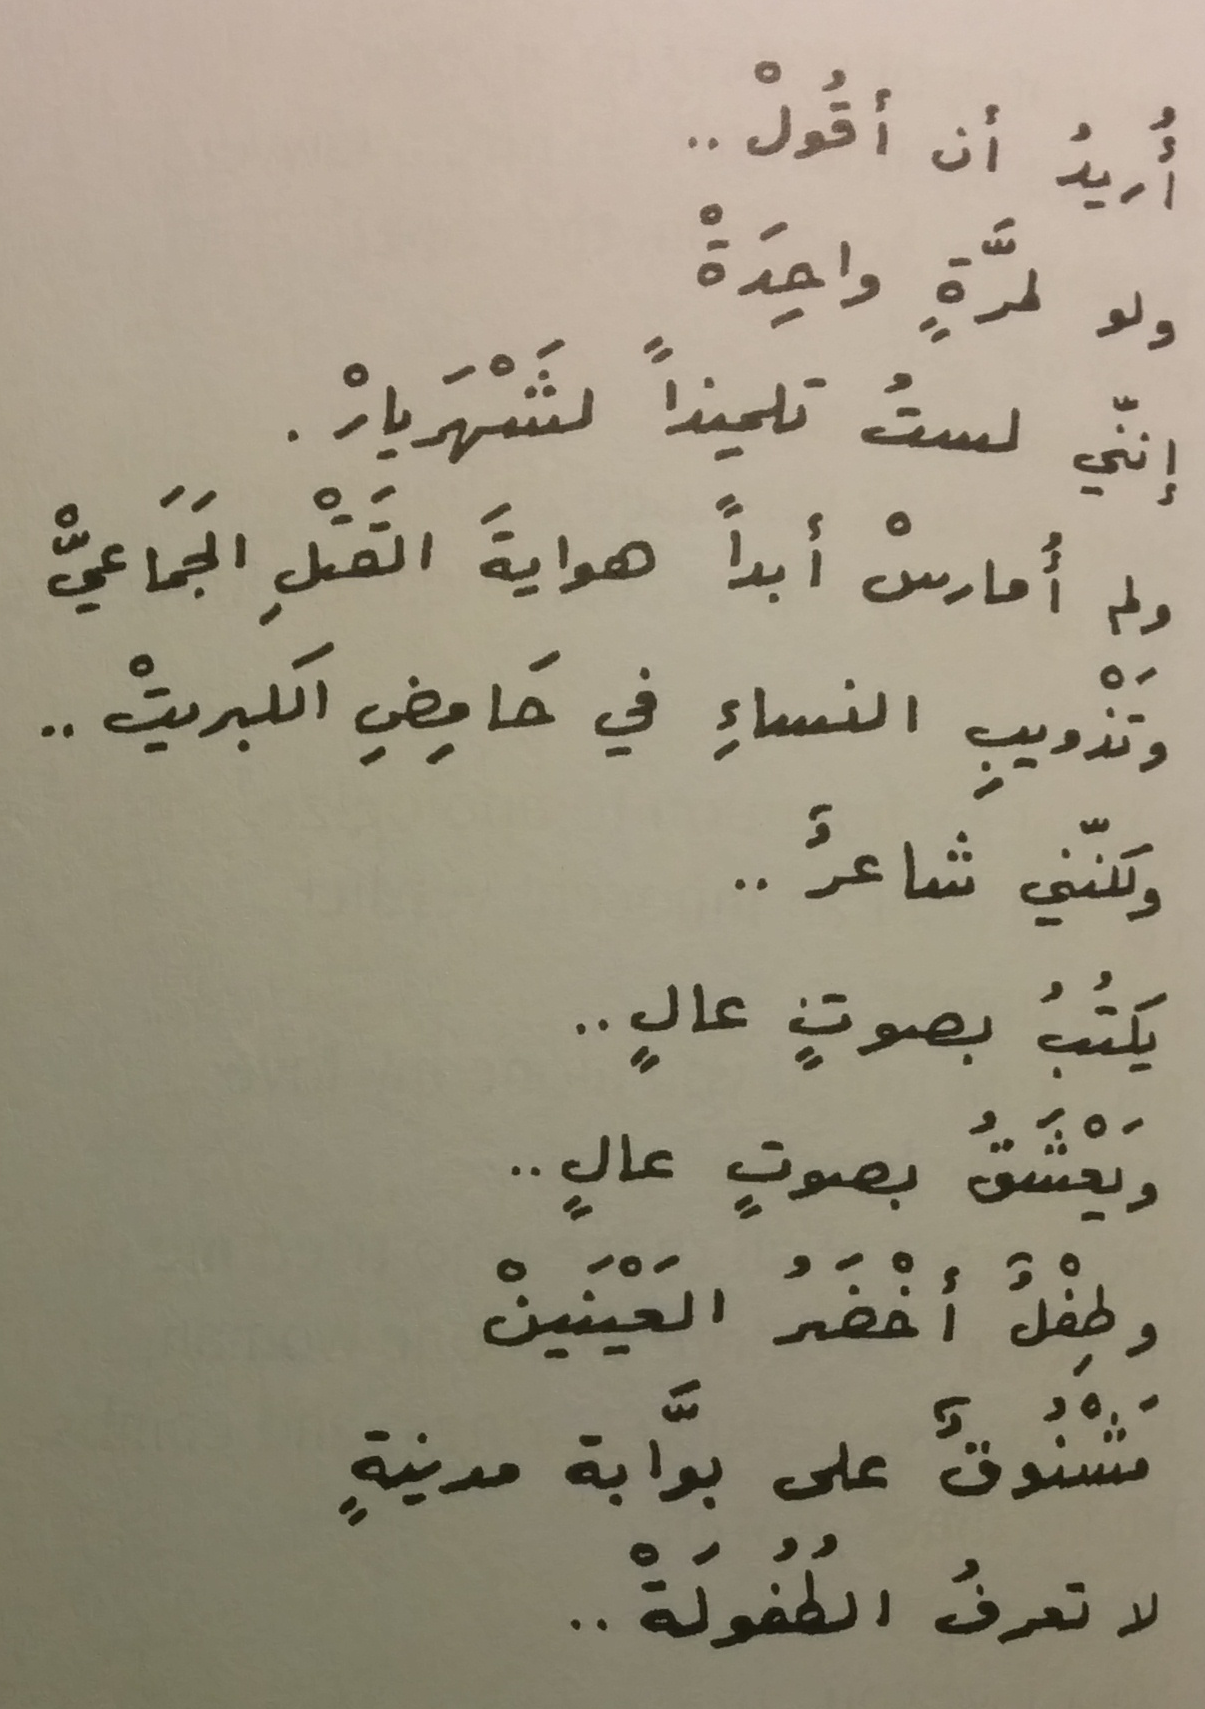 أُريدُ أن أقُولْ ..
ولو لمرَّةٍ واحِدَةْ
إنّني لستُ تلميذاً لشَهْرَيارْ .
ولم أُمارسْ أبداً هوايةَ القَتْلِ الجَمَاعيّْ
وَتَذْويبِ النساءِ في حَامِضِ الكبريتْ ..
ولكنّني شاعرٌ ..
يَكتُبُ بصوتٍ عالٍ ..
وَيَعْشَقُ بصوتٍ عالٍ ..
وطِفْلٌ أخْضَرُ العَيْنَينْ
مَشْنُوقٌ على بوَّابة مدينةٍ
لا تعرفُ الطُفُولَةْ ..